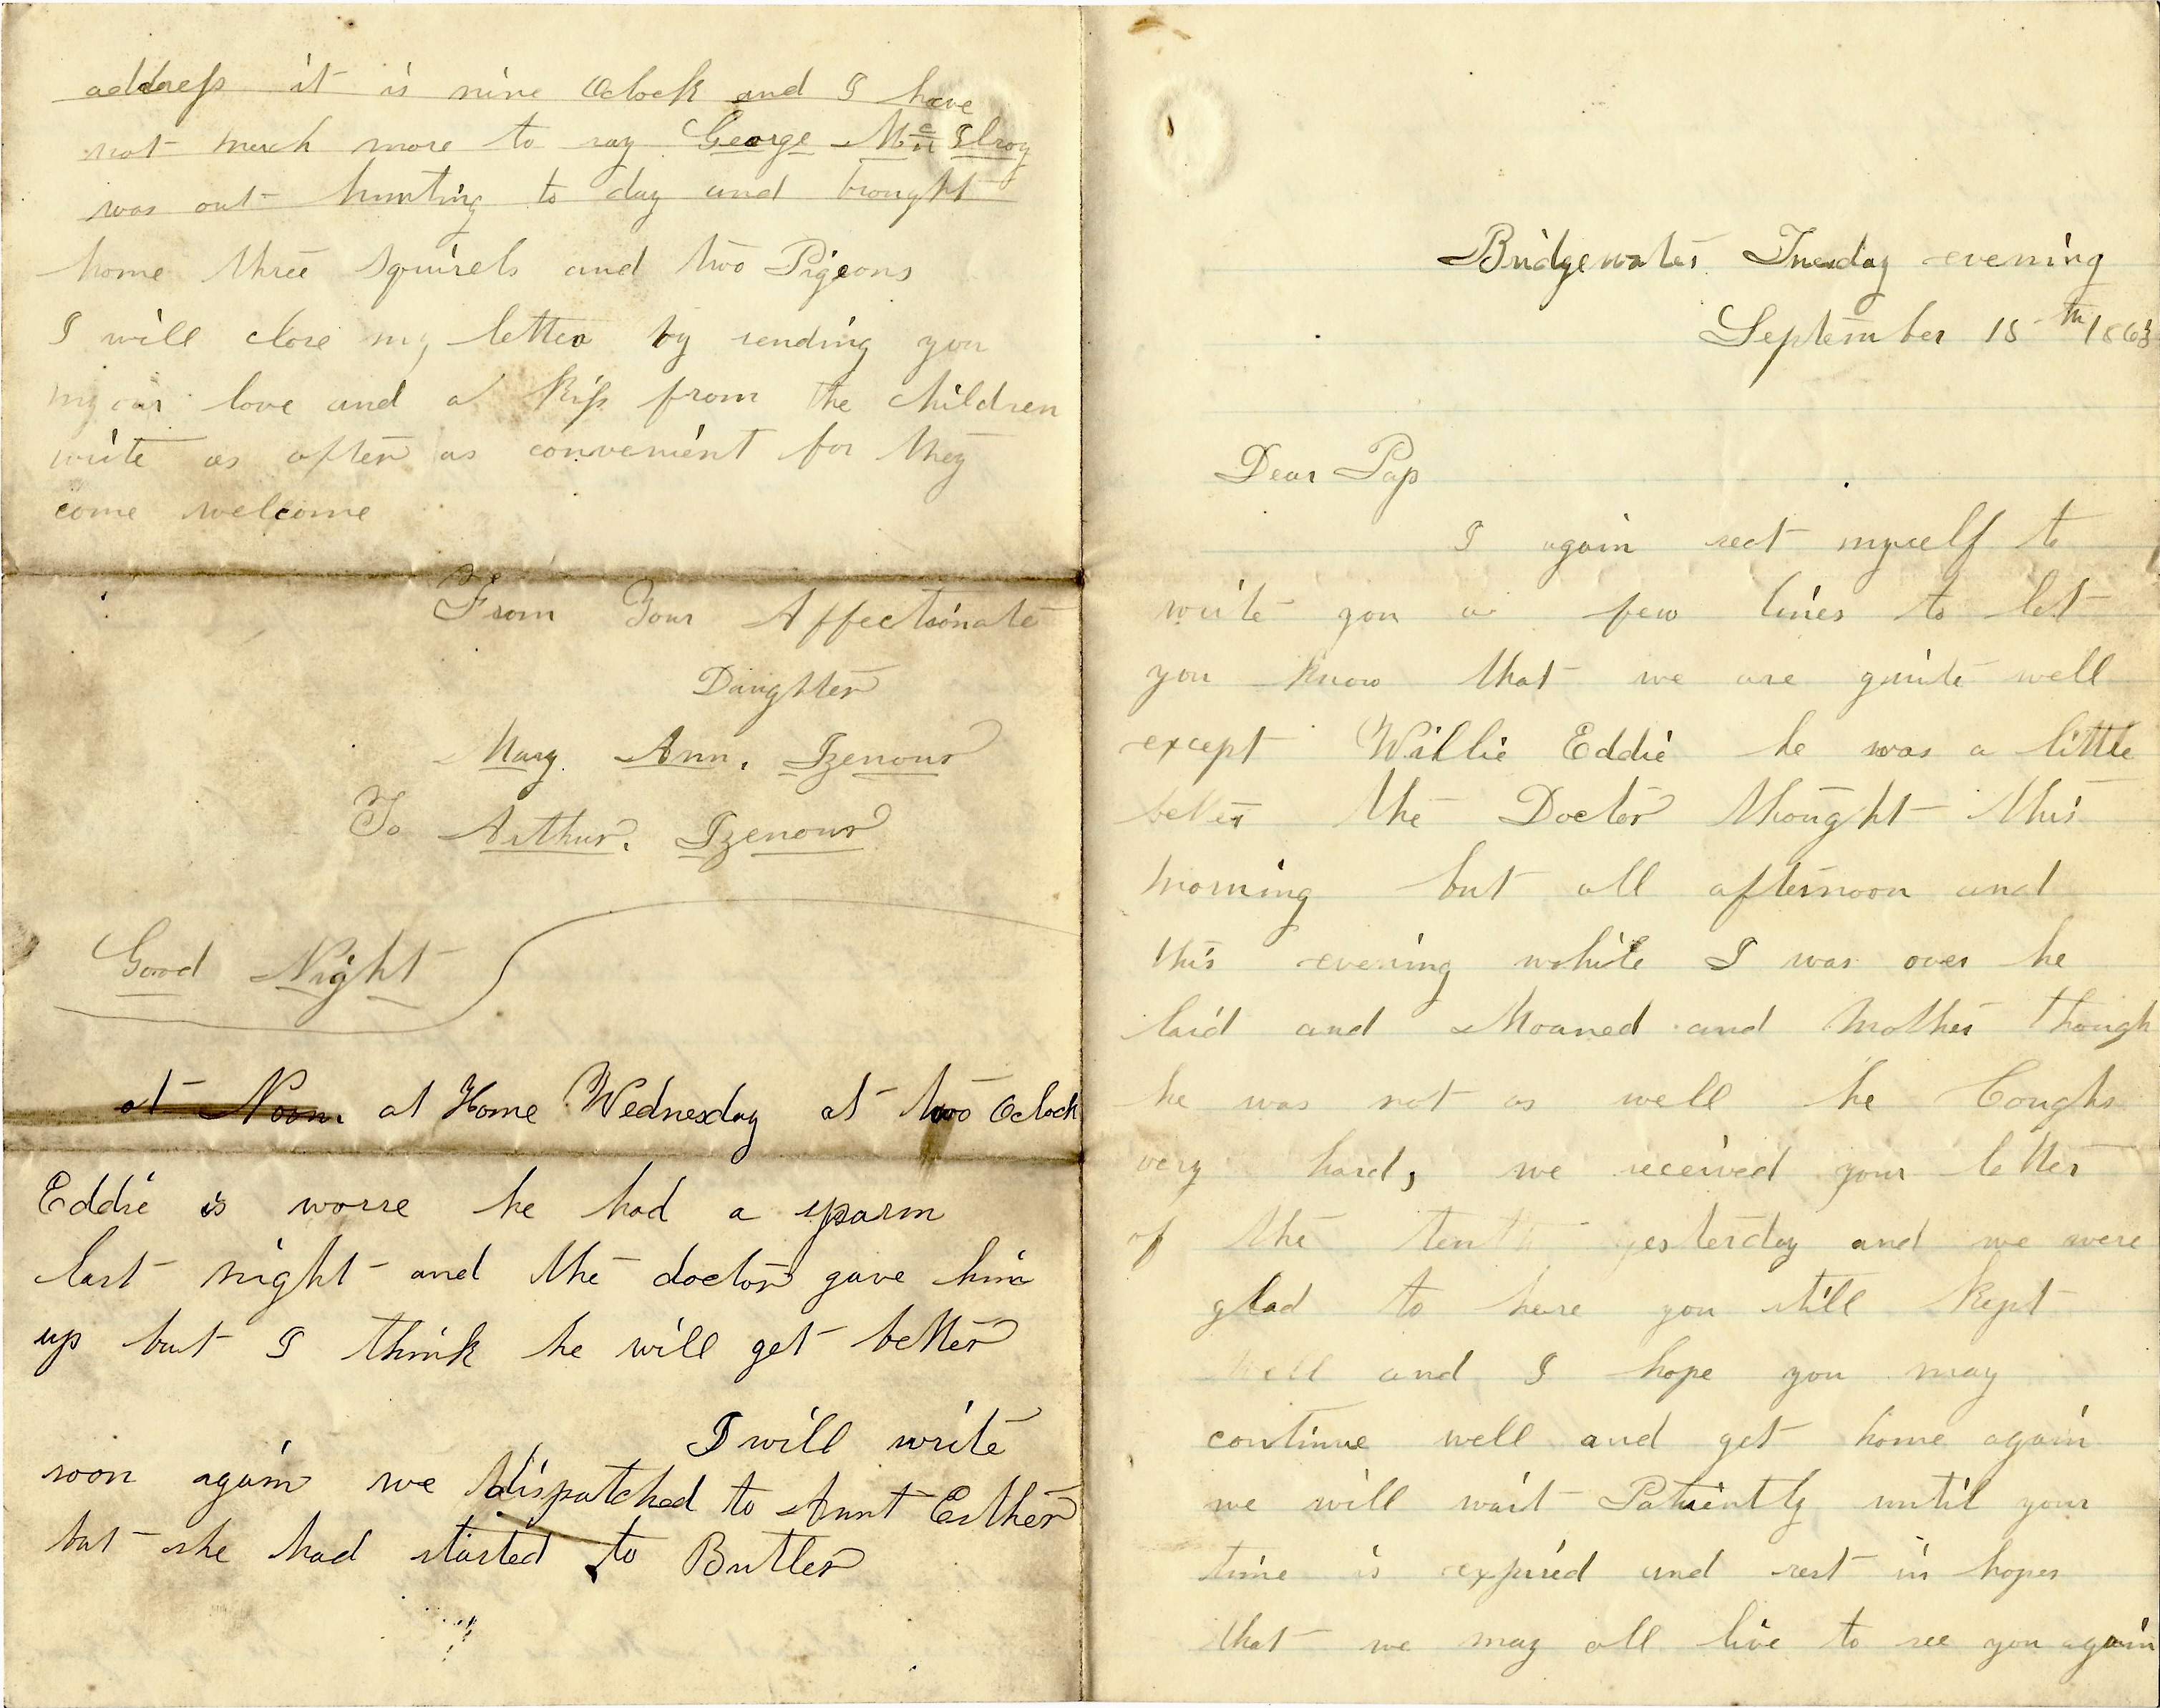 Bridgewater Tuesday evening
September 15th 1863
Dear Pap
I again seat myself to
write you a few lines to let
you know that we are quite well
except Willie Eddie he was a little
better the Doctor thought this
morning but all afternoon and
this evening while I was over he
laid and Moaned and Mother though
he was not as well he Coughs
very hard, we received your letter
of the tenth yesterday and we were
glad to here you still kept
well and I hope you may
continue well and get home again
we will wait Patiently until your
time is expired and rest in hopes
that we may all live to see you again
address it is nine Oclock and I have
not much more to say George Mc Elroy
was out hunting to day and brought
home three Squirels and two Pigeons
I will close my letter by sending you
my love and a kiss from the children
write as often as convenient for they
come welcome
From Your Affectionate
Daughter
Mary Ann. Izenour
To Arthur. Izenour
Good Night
at Noon at Home Wednesday at two Oclock
Eddie is worse he had a sparm
last night and the doctor gave him
up but I think he will get better
I will write
soon again we dispatched to Aunt Esther
but she had started to Butler